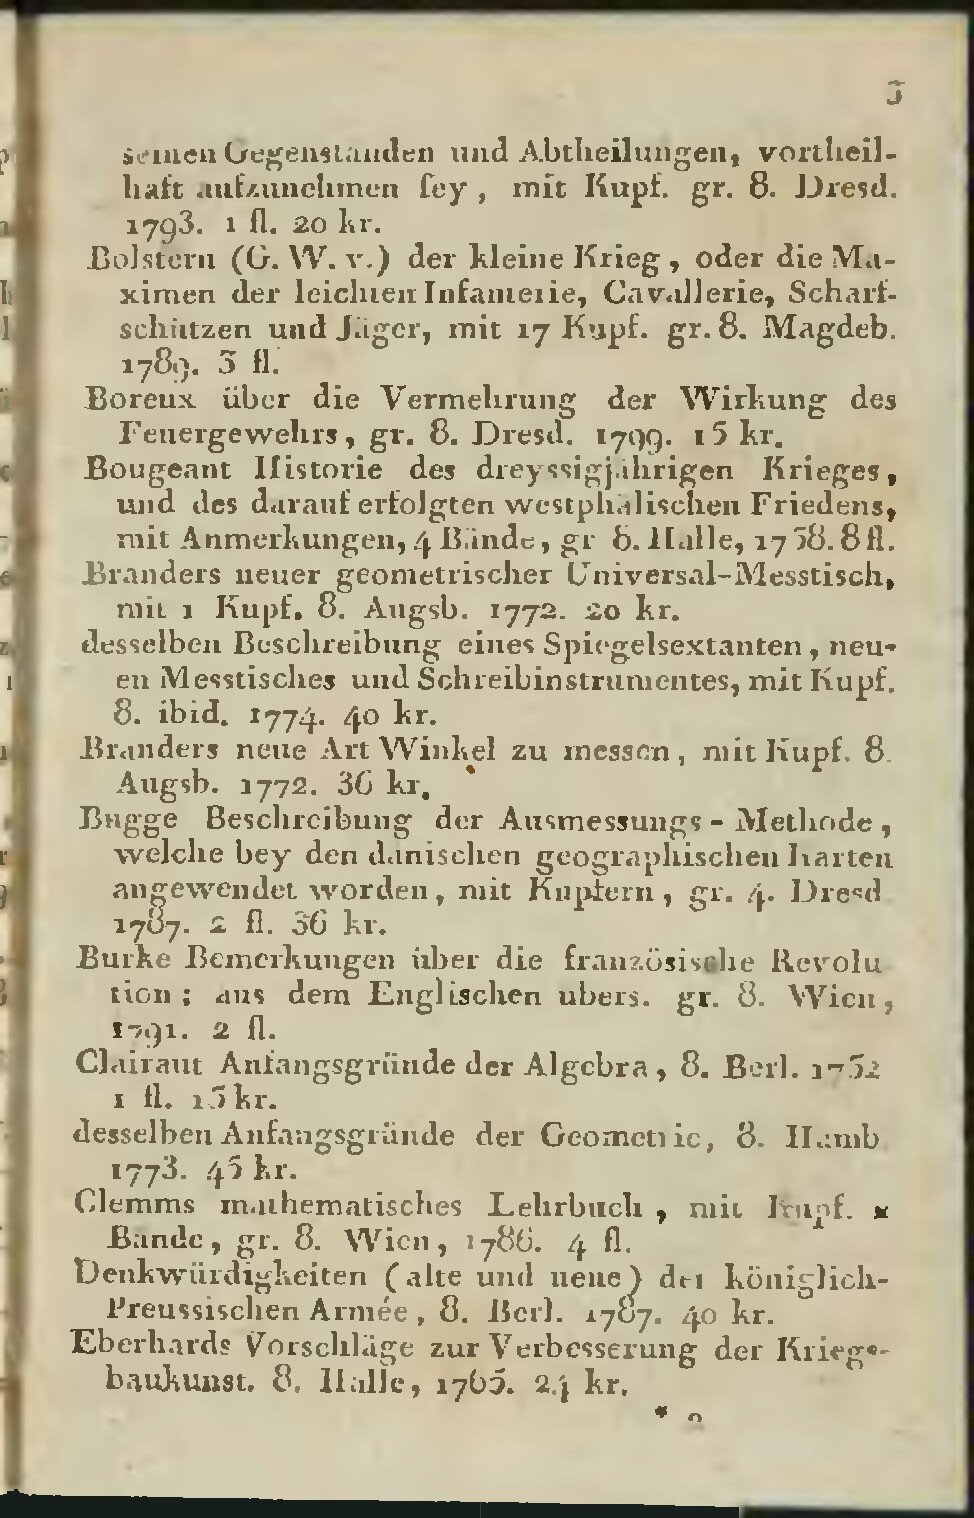 3
seinen Gegenständen und Abtheilungen, vortheil-
haft aufzunehmen sey, mit Kupf. gr. 8. Dresd.
1793. 1 fl. 20 kr.
Bolstern (G. W. v.) der kleine Krieg, oder die Ma-
ximen der leichten Infanterie, Cavallerie, Scharf-
schützen und Jäger, mit 17 Kupf. gr. 8. Magdeb.
1789. 3 fl.
Boreux über die Vermehrung der Wirkung des
Feuergewehrs, gr. 8. Dresd. 1799. 15 kr.
Bougeant Historie des dreyssigjährigen Krieges,
und des darauf erfolgten westphälischen Friedens,
mit Anmerkungen, 4 Bände, gr 8. Halle, 1758. 8 fl.
Branders neuer geometrischer Universal-Messtisch,
mit 1 Kupf. 8. Augsb. 1772. 20 kr.
desselben Beschreibung eines Spiegelsextanten, neu-
en Messtisches und Schreibinstrumentes, mit Kupf.
8. ibid. 1774. 40 kr.
Branders neue Art Winkel zu messen, mit Kupf. 8.
Augsb. 1772. 36 kr.
Bugge Beschreibung der Ausmessungs-Methode,
welche bey den dänischen geographischen Karten
angewendet worden, mit Kupfern, gr. 4. Dresd
1787. 2 fl. 36 kr.
Burke Bemerkungen über die französische Revolu
tion; aus dem Englischen übers. gr. 8. Wien,
1791. 2 fl.
Clairaut Anfangsgründe der Algebra, 8. Berl. 1752
1 fl. 15 kr.
desselben Anfangsgründe der Geometrie, 8. Hamb
1773. 45 kr.
Clemms mathematisches Lehrbuch, mit Kupf.
Bände, gr. 8. Wien, 1786. 4 fl.
Denkwürdigkeiten (alte und neue) der königlich-
Preussischen Armée, 8. Berl. 1787. 40 kr.
Eberhards Vorschläge zur Verbesserung der Kriegs-
baukunst. 8. Halle, 1765. 24 kr.
* 2